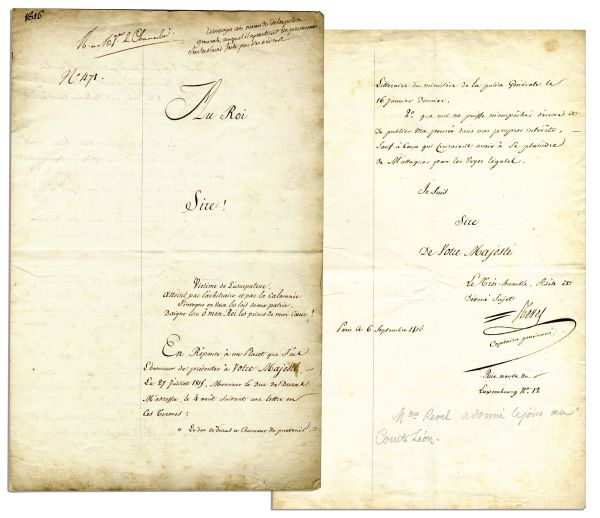 1816
N° 471.
Au Roi
Sire !
Victime de L'usurpateur,
Atteint par l'arbitraire et par la Calomnie
J'invoque en Vain les lois de ma patrie,
Daigne lire ô mon Roi les peines de mon Cœur !
En Réponse à un Placet que J'ai eu
L'honneur de présenter à Votre Majesté
Le 27 Juillet 1815, Monsieur le Duc de Duras
M'adressa, le 4 août suivant une lettre en
Ces termes :
« Le duc de duras a l'honneur de prévenir
Litteraire du ministère de la police Générale le
16 janvier dernier.
2° que nul ne puisse m'empêcher d'écrire et
de publier ma pensée dans mes propres intérêts,
Sauf à Ceux qui Croiraient avoir à Se plaindre
de M'attaquer par les Voyes légales.
Je Suis
Sire
De Votre Majesté
Le Très-humble, Fidèle et
Dévoué Sujet
Revel
Capitaine
Paris le 6 Septembre 1816
Rue neuve du
Luxembourg N° 12
Mme Revel a donné le jour au
Comte Léon.